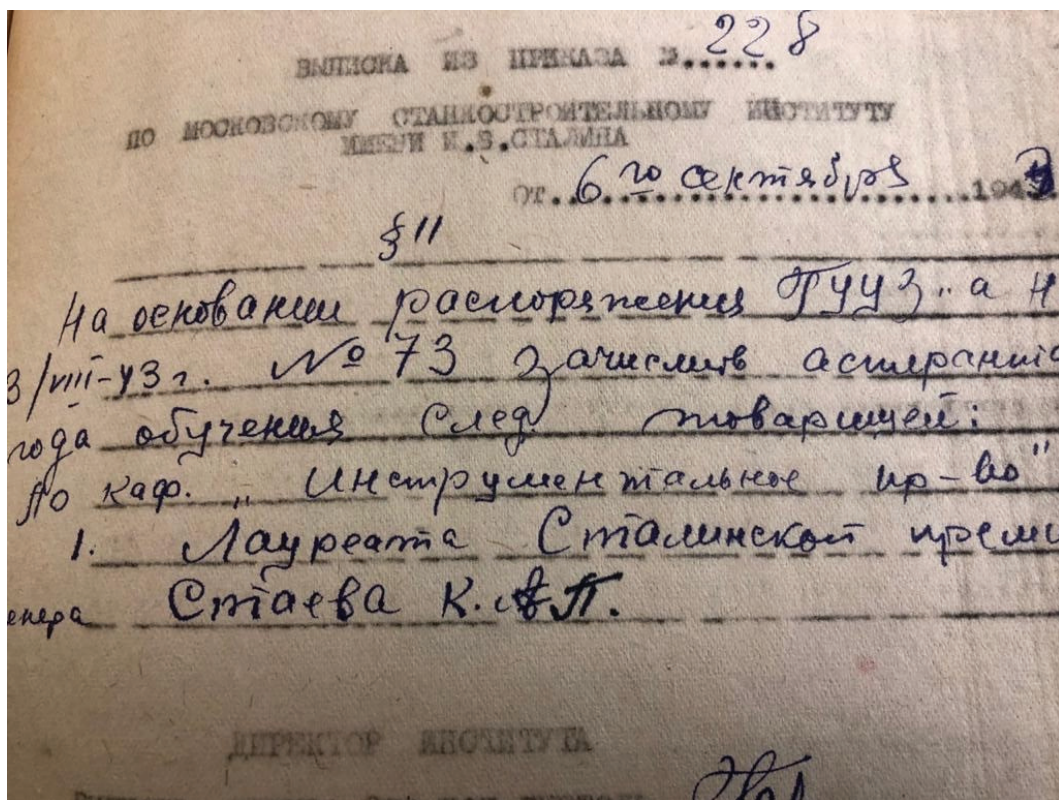 ВЫПИСКА ИЗ ПРИКАЗА №......228
ПО МОСКОВСКОМУ СТАНКОСТРОИТЕЛЬНОМУ ИНСТИТУТУ
ИМЕНИ И.В.СТАЛИНА
от..6го сентября......1943
§ 11
На основании распоряжения ГУУЗ"а Н
3/VIII-43 г. № 73 зачислить аспиранто
года обучения след. товарищей:
по каф. "Инструментальное пр-во"
1. Лауреата Сталинской преми
енера Стаева К. П.
ДИРЕКТОР ИНСТИТУТА